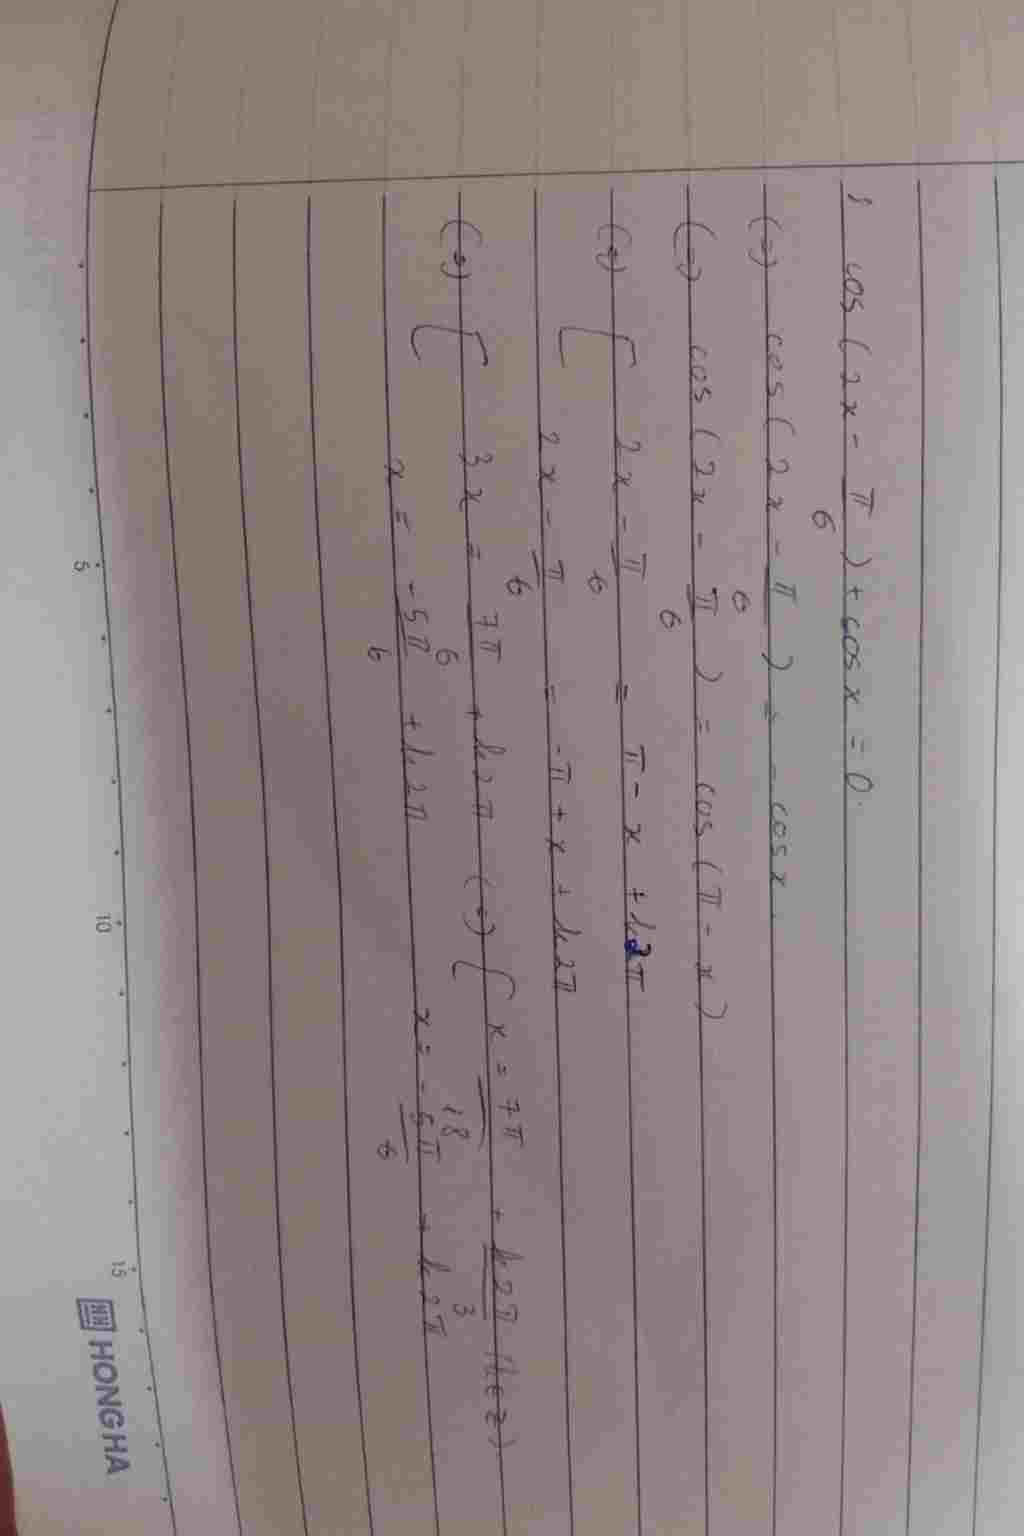 1 cos(2x - π/6) + cos x = 0.
(=) cos(2x - π/6) = - cos x.
(=) cos(2x - π/6) = cos(π - x)
(=) [ 2x - π/6 = π - x + k2π
2x - π/6 = -π + x + k2π
(=) [ 3x = 7π/6 + k2π (=) [ x = 7π/18 + k2π/3 (k∈Z)
x = -5π/6 + k2π x = -5π/6 + k2π
5 10 15
HH HONG HA